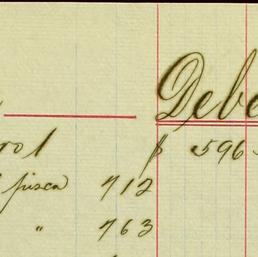 Debe
rol $ 596
fisca 712
" 763